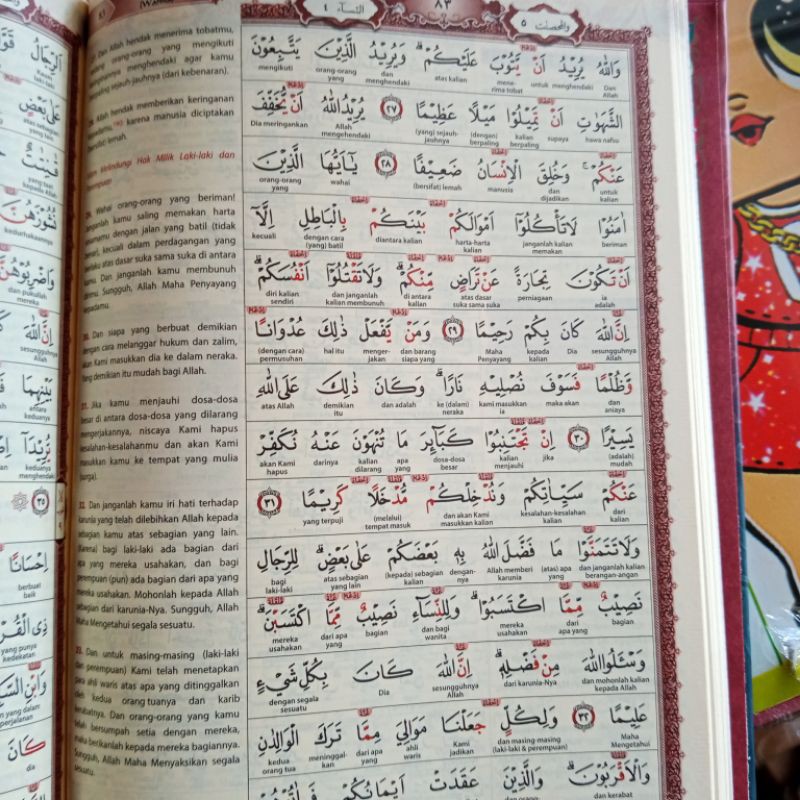 ٨٣
النسآء ٤
والمحصنت ٥
Dan Allah hendak menerima tobatmu,
orang-orang yang mengikuti
menghendaki agar kamu
sejauh-jauhnya (dari kebenaran).
Allah hendak memberikan keringanan
karena manusia diciptakan
lemah.
Melindungi Hak Milik Laki-laki dan
29. Wahai orang-orang yang beriman!
Janganlah kamu saling memakan harta
sesamamu dengan jalan yang batil (tidak
kecuali dalam perdagangan yang
atas dasar suka sama suka di antara
Dan janganlah kamu membunuh
dirimu. Sungguh, Allah Maha Penyayang
kepadamu.
30. Dan siapa yang berbuat demikian
dengan cara melanggar hukum dan zalim,
Kami masukkan dia ke dalam neraka.
Yang demikian itu mudah bagi Allah.
31. Jika kamu menjauhi dosa-dosa
besar di antara dosa-dosa yang dilarang
mengerjakannya, niscaya Kami hapus
kesalahan-kesalahanmu dan akan Kami
masukkan kamu ke tempat yang mulia
(surga).
32. Dan janganlah kamu iri hati terhadap
karunia yang telah dilebihkan Allah kepada
sebagian kamu atas sebagian yang lain.
(Karena) bagi laki-laki ada bagian dari
apa yang mereka usahakan, dan bagi
perempuan (pun) ada bagian dari apa yang
mereka usahakan. Mohonlah kepada Allah
sebagian dari karunia-Nya. Sungguh, Allah
Maha Mengetahui segala sesuatu.
33. Dan untuk masing-masing (laki-laki
dan perempuan) Kami telah menetapkan
para ahli waris atas apa yang ditinggalkan
oleh kedua orang tuanya dan karib
kerabatnya. Dan orang-orang yang kamu
telah bersumpah setia dengan mereka,
maka berikanlah kepada mereka bagiannya.
Sungguh, Allah Maha Menyaksikan segala
sesuatu.
وَاللّٰهُ يُرِيْدُ اَنْ يَّتُوْبَ عَلَيْكُمْ ۗ وَيُرِيْدُ الَّذِيْنَ يَتَّبِعُوْنَ
Dan Allah menghendaki untuk menerima tobat atas kalian dan menghendaki orang-orang yang mengikuti
الشَّهَوٰتِ اَنْ تَمِيْلُوْا مَيْلًا عَظِيْمًا ٢٧ يُرِيْدُ اللّٰهُ اَنْ يُّخَفِّفَ
hawa nafsu supaya kalian berpaling (dengan) berpaling (yang) sejauh-jauhnya Allah menghendaki Dia meringankan
عَنْكُمْ ۚ وَخُلِقَ الْاِنْسَانُ ضَعِيْفًا ٢٨ يٰٓاَيُّهَا الَّذِيْنَ
untuk kalian dan dijadikan manusia (bersifat) lemah wahai orang-orang yang
اٰمَنُوْا لَا تَأْكُلُوْٓا اَمْوَالَكُمْ بَيْنَكُمْ بِالْبَاطِلِ اِلَّآ
beriman janganlah kalian memakan harta-harta kalian diantara kalian dengan cara (yang) batil kecuali
اَنْ تَكُوْنَ تِجَارَةً عَنْ تَرَاضٍ مِّنْكُمْ ۗ وَلَا تَقْتُلُوْٓا اَنْفُسَكُمْ ۗ
ia adalah perniagaan atas dasar suka sama suka di antara kalian dan janganlah kalian membunuh diri kalian sendiri
اِنَّ اللّٰهَ كَانَ بِكُمْ رَحِيْمًا ٢٩ وَمَنْ يَّفْعَلْ ذٰلِكَ عُدْوَانًا
sesungguhnya Allah Dia kepada kalian Maha Penyayang dan barang siapa yang mengerjakan hal itu (dengan cara) permusuhan
وَّظُلْمًا فَسَوْفَ نُصْلِيْهِ نَارًا ۗ وَكَانَ ذٰلِكَ عَلَى اللّٰهِ
dan aniaya maka akan kami masukkan ia ke (dalam) neraka dan adalah demikian itu atas Allah
يَسِيْرًا ٣٠ اِنْ تَجْتَنِبُوْا كَبَاۤىِٕرَ مَا تُنْهَوْنَ عَنْهُ نُكَفِّرْ
(adalah) mudah jika kalian menjauhi dosa-dosa besar apa yang kalian dilarang darinya akan Kami hapus
عَنْكُمْ سَيِّاٰتِكُمْ وَنُدْخِلْكُمْ مُّدْخَلًا كَرِيْمًا ٣١
dari kalian kesalahan-kesalahan kalian dan akan Kami masukkan kalian (melalui) tempat masuk yang terpuji
وَلَا تَتَمَنَّوْا مَا فَضَّلَ اللّٰهُ بِهٖ بَعْضَكُمْ عَلٰى بَعْضٍ ۗ لِلرِّجَالِ
dan janganlah kalian berangan-angan (atas) apa yang Allah memberi karunia dengan-nya (kepada) sebagian kalian atas sebagian yang lain bagi laki-laki
نَصِيْبٌ مِّمَّا اكْتَسَبُوْا ۗ وَلِلنِّسَاۤءِ نَصِيْبٌ مِّمَّا اكْتَسَبْنَ ۗ
bagian dari apa yang mereka usahakan dan bagi wanita bagian dari apa yang mereka usahakan
وَسْـَٔلُوا اللّٰهَ مِنْ فَضْلِهٖ ۗ اِنَّ اللّٰهَ كَانَ بِكُلِّ شَيْءٍ
dan mohonlah kalian kepada Allah dari karunia-Nya sesungguhnya Allah Dia dengan segala sesuatu
عَلِيْمًا ٣٢ وَلِكُلٍّ جَعَلْنَا مَوَالِيَ مِمَّا تَرَكَ الْوَالِدٰنِ
Maha Mengetahui dan masing-masing (laki-laki & perempuan) Kami jadikan ahli waris dari apa yang meninggalkan kedua orang tua
وَالْاَقْرَبُوْنَ ۗ وَالَّذِيْنَ عَقَدَتْ اَيْمَانُكُمْ فَاٰتُوْهُمْ
dan kerabat dan orang-orang